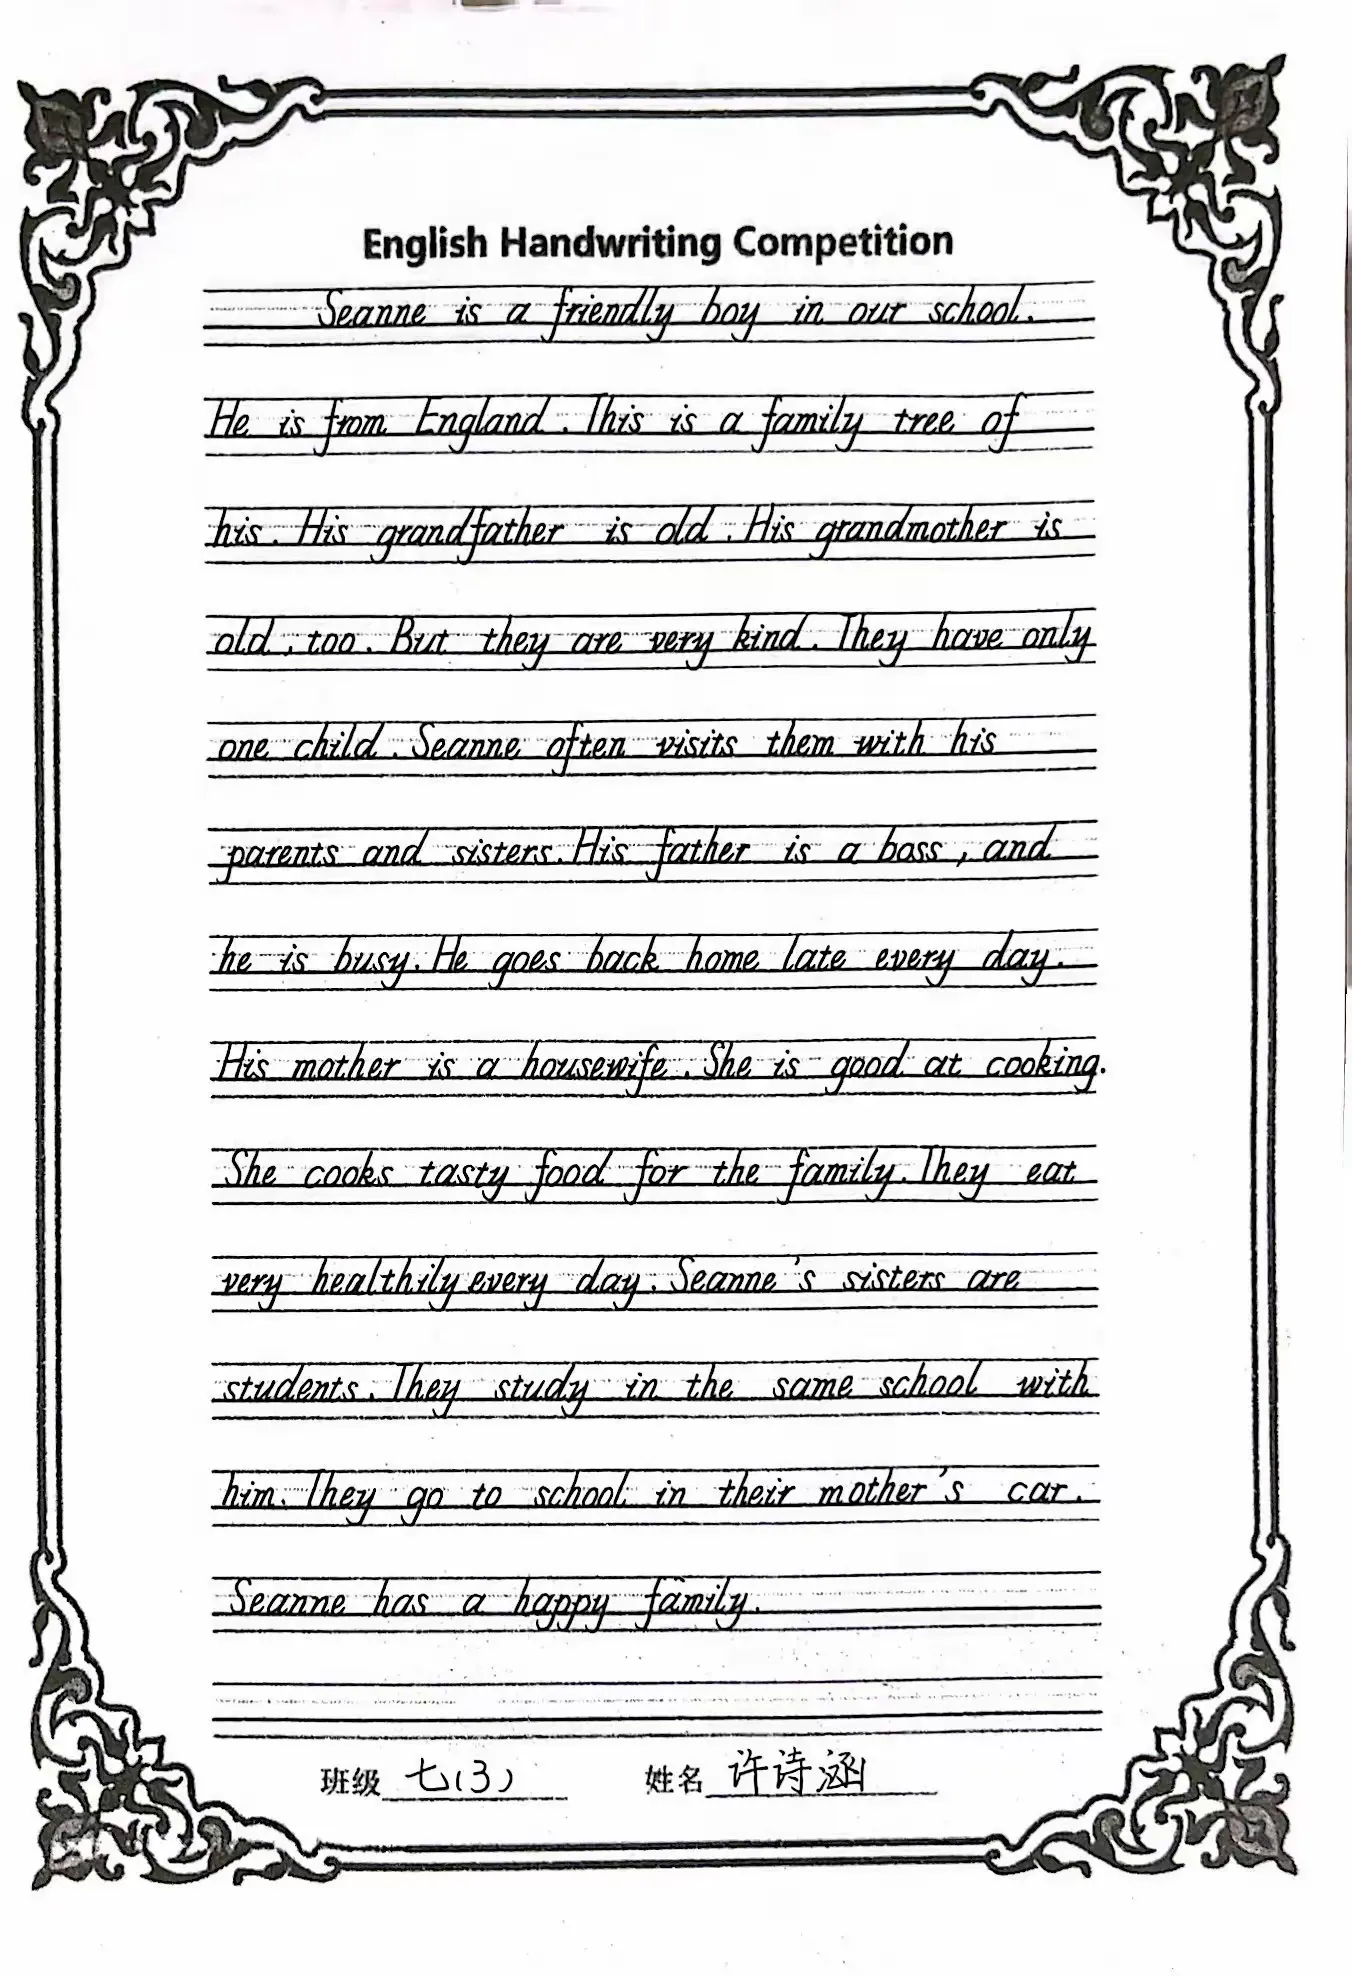 English Handwriting Competition
Seanne is a friendly boy in our school.
He is from England. This is a family tree of
his. His grandfather is old. His grandmother is
old, too. But they are very kind. They have only
one child. Seanne often visits them with his
parents and sisters. His father is a boss, and
he is busy. He goes back home late every day.
His mother is a housewife. She is good at cooking.
She cooks tasty food for the family. They eat
very healthily every day. Seanne's sisters are
students. They study in the same school with
him. They go to school in their mother's car.
Seanne has a happy family.
班级 七(3) 姓名 许诗涵